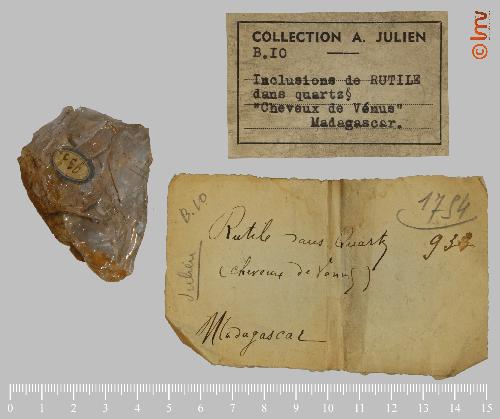 COLLECTION A. JULIEN
B.10
Inclusions de RUTILE
dans quartz§
"Cheveux de Vénus"
Madagascar.
B.10
Julien
1754
Rutile dans Quartz
933
(cheveux de Vénus)
Madagascar
933
0 1 2 3 4 5 6 7 8 9 10 11 12 13 14 15